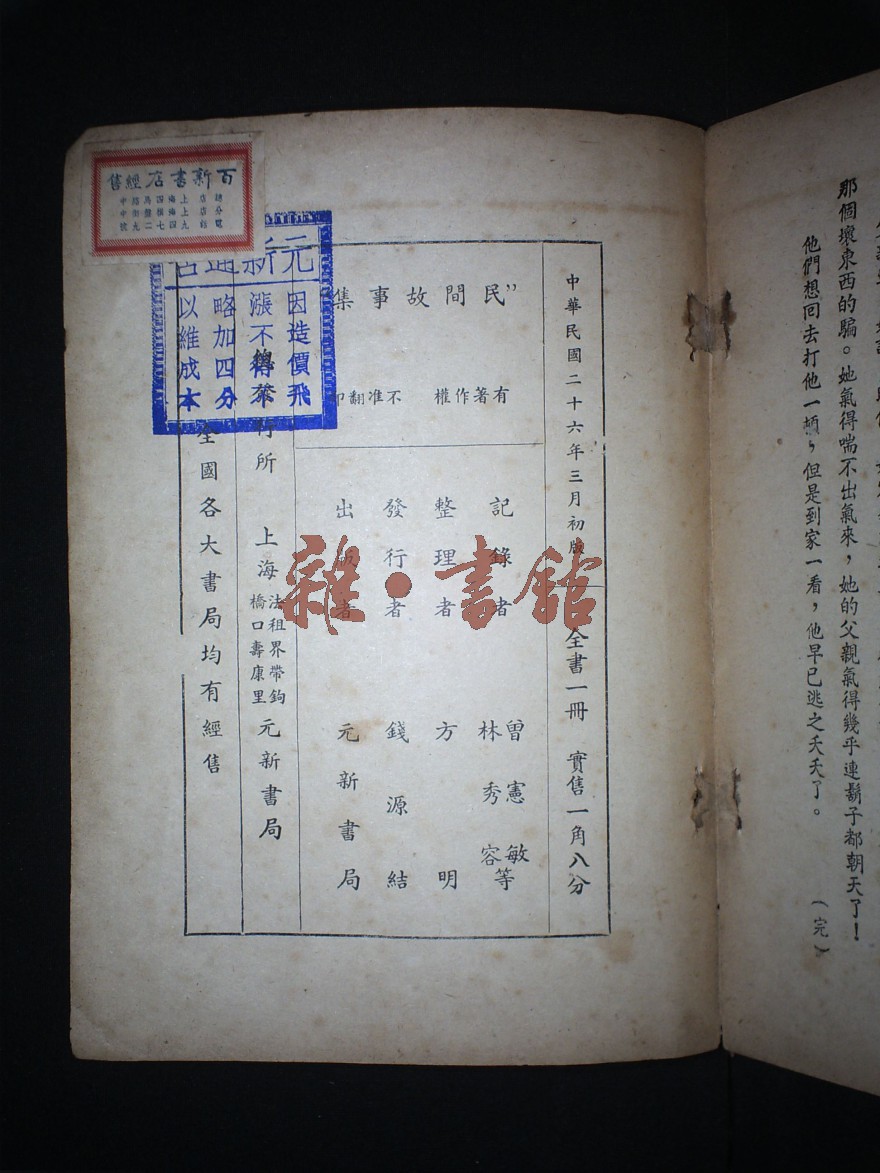 那個壞東西的騙。她氣得喘不出氣來，她的父親氣得幾乎連鬍子都朝天了！
他們想回去打他一頓，但是到家一看，他早已逃之夭夭了。
（完）
中華民國二十六年三月初版
全書一冊 實售一角八分
"民間故事集
有著作權 不准翻印
記錄者 曾憲敏 林秀容等
整理者 方明
發行者 錢源結
出版者 元新書局
總發行所 上海 法租界帶鉤橋口壽康里 元新書局
全國各大書局均有經售
百新書店經售
元新
因造價飛
漲不得不
略加四分
以維成本
雜·書館